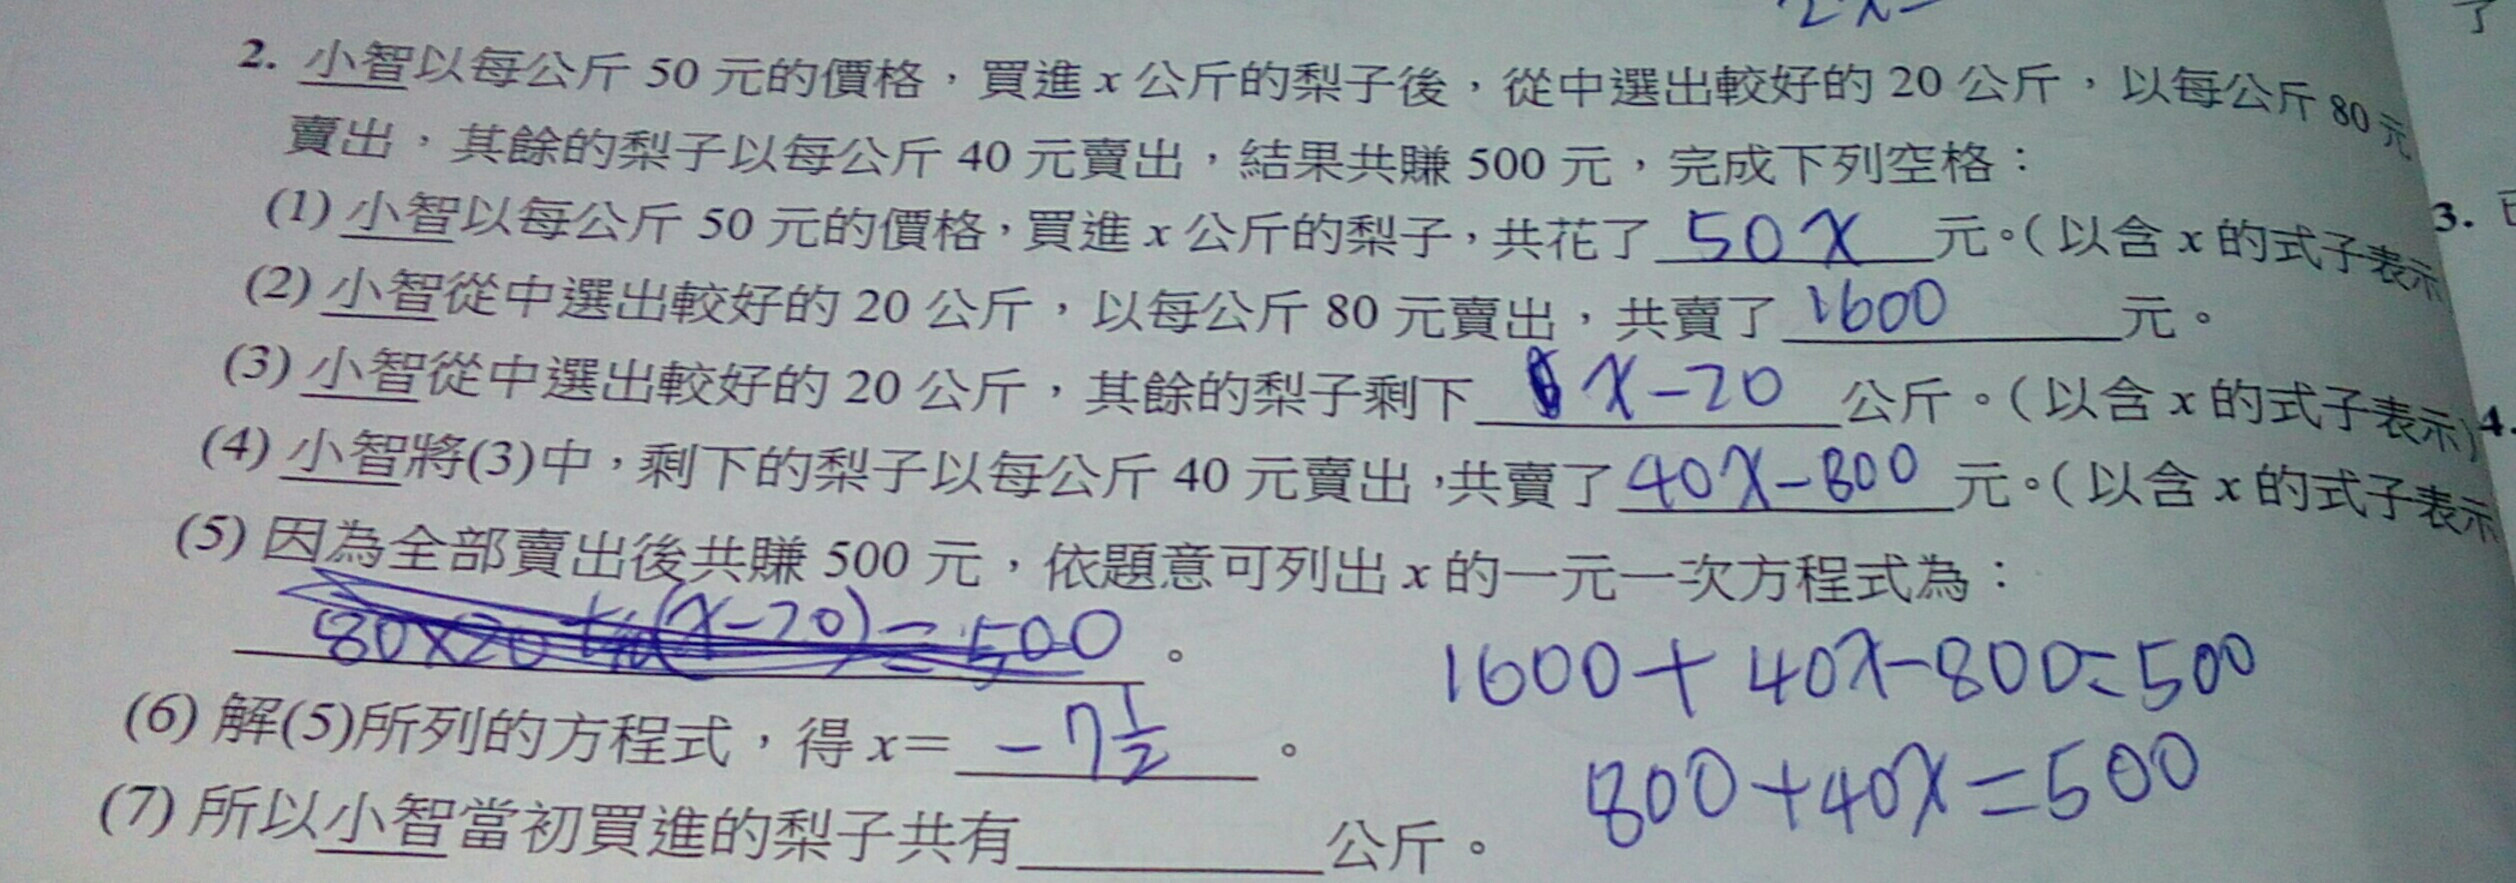 2. 小智以每公斤 50 元的價格，買進 x 公斤的梨子後，從中選出較好的 20 公斤，以每公斤 80 元
賣出，其餘的梨子以每公斤 40 元賣出，結果共賺 500 元，完成下列空格：
(1) 小智以每公斤 50 元的價格，買進 x 公斤的梨子，共花了 50x 元。（以含 x 的式子表示
(2) 小智從中選出較好的 20 公斤，以每公斤 80 元賣出，共賣了 1600 元。
(3) 小智從中選出較好的 20 公斤，其餘的梨子剩下 x-20 公斤。（以含 x 的式子表示）
(4) 小智將(3)中，剩下的梨子以每公斤 40 元賣出，共賣了 40x-800 元。（以含 x 的式子表示
(5) 因為全部賣出後共賺 500 元，依題意可列出 x 的一元一次方程式為：
80×20+40(x-20)=500 。
1600+40x-800=500
(6) 解(5)所列的方程式，得 x= -7 1/2 。
800+40x=500
(7) 所以小智當初買進的梨子共有 公斤。
3.
4.